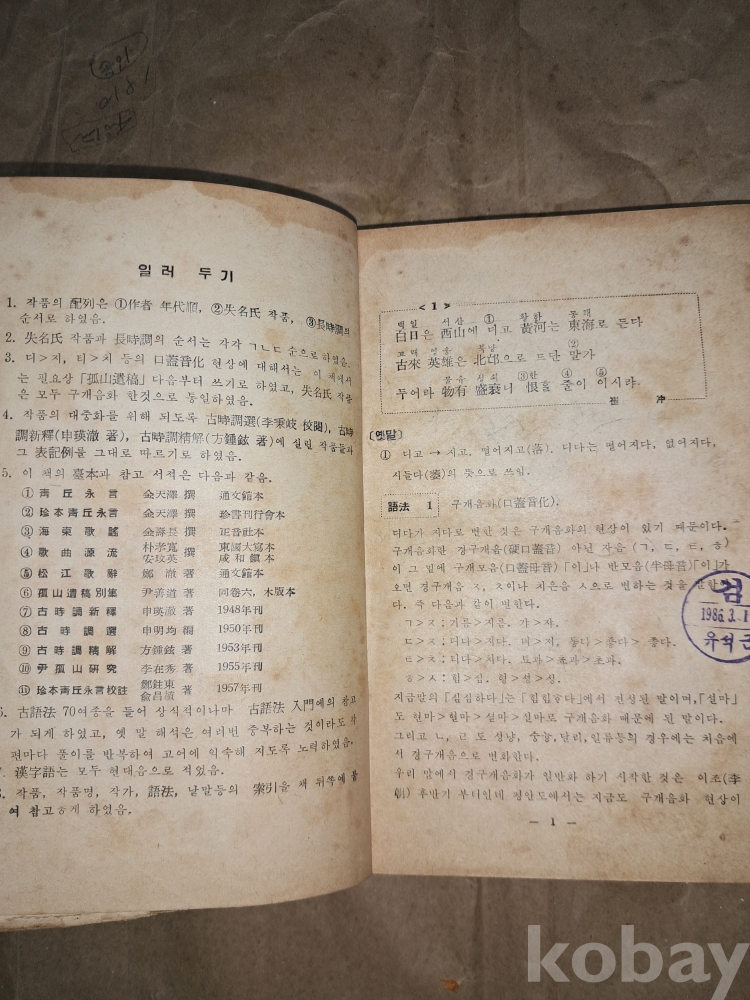 일러 두기
1. 작품의 配列은 ①作者 年代順, ②失名氏 作品, ③長時調의
순서로 하였음.
2. 失名氏 作品과 長時調의 순서는 각각 ㄱㄴㄷ 순으로 하였음.
3. 디>지, 티>치 등의 口蓋音化 현상에 대해서는 이 책에서
는 필요상 「孤山遺稿」 다음부터 쓰기로 하였고, 失名氏 작품
은 모두 구개음화 한것으로 통일하였음.
4. 작품의 대중화를 위해 되도록 古時調選(李秉岐 校閱), 古時
調新釋(申瑛澈 著), 古時調精解(方鍾鉉 著)에 실린 작품들과
그 表記例를 그대로 따르기로 하였음.
5. 이 책의 臺本과 참고 서적은 다음과 같음.
① 靑丘永言 金天澤 撰 通文館本
② 珍本靑丘永言 金天澤 撰 珍書刊行會本
③ 海東歌謠 金壽長 撰 正音社本
④ 歌曲源流 朴孝寬 安玟英 撰 東國大寫本 咸和鎭本
⑤ 松江歌辭 鄭澈 著 通文館本
⑥ 孤山遺稿別集 尹善道 著 同卷六, 木版本
⑦ 古時調新釋 申瑛澈 著 1948年刊
⑧ 古時調選 申明均 編 1950年刊
⑨ 古時調精解 方鍾鉉 著 1953年刊
⑩ 尹孤山硏究 李在秀 著 1955年刊
⑪ 珍本靑丘永言校註 鄭鉒東 兪昌植 著 1957年刊
6. 古語法 70여종을 들어 상식적이나마 古語法 入門에의 참고
가 되게 하였고, 옛 말 해석은 여러번 중복하는 것이라도 각
편마다 풀이를 반복하여 고어에 익숙해 지도록 노력하였음.
7. 漢字語는 모두 현대음으로 적었음.
8. 작품, 작품명, 작가, 語法, 낱말등의 索引을 책 뒤쪽에 붙
여 참고하게 하였음.
<1>
백일 서산 ① 황하 동해
白日은 西山에 디고 黃河는 東海로 든다
고래 영웅 북망 ②
古來 英雄은 北邙으로 드단 말가
물유 성쇠 ③한 ④ ⑤
두어라 物有 盛衰니 恨할 줄이 이시랴.
崔 冲
〔옛말〕
① 디고→지고. 떨어지고(落). 디다는 떨어지다, 없어지다,
시들다(萎)의 뜻으로 쓰임.
語法 1 구개음화(口蓋音化).
디다가 지다로 변한 것은 구개음화의 현상이 있기 때문이다.
구개음화란 경구개음(硬口蓋音) 아닌 자음 (ㄱ, ㄷ, ㅌ, ㅎ)
이 그 밑에 구개모음(口蓋母音) 「이」나 반모음(半母音) 「이」가
오면 경구개음 ㅈ, ㅊ이나 치은음 ㅅ으로 변하는 것을 말한
다. 즉 다음과 같이 변한다.
ㄱ>ㅈ: 기름>지름. 갸>쟈.
ㄷ>ㅈ: 디다>지다. 뎌>저, 둏다>죻다> 좋다.
ㅌ>ㅊ: 티다>치다. 툐과>쵸과>초과.
ㅎ>ㅅ: 힘>심. 형>셩>성.
지금말의 「심심하다」는 「힘힘하다」에서 전성된 말이며, 「설마」
도 현마>혐마>셜마>설마로 구개음화 때문에 된 말이다.
그리고 ㄴ, ㄹ도 성냥, 숭늉, 달리, 일류등의 경우에는 처음에
서 경구개음으로 변화한다.
우리 말에서 경구개음화가 일반화 하기 시작한 것은 이조(李
朝) 후반기 부터인데 평안도에서는 지금도 구개음화 현상이
— 1 —
검
1986.3.1
유석근
kobay